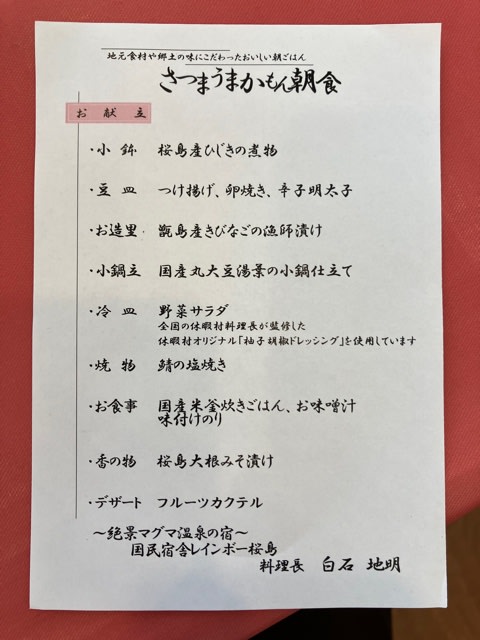 地元食材や郷土の味にこだわったおいしい朝ごはん
さつまうまかもん朝食
お献立
・小鉢 桜島産ひじきの煮物
・豆皿 つけ揚げ、卵焼き、辛子明太子
・お造里 甑島産きびなごの漁師漬け
・小鍋立 国産丸大豆湯葉の小鍋仕立て
・冷皿 野菜サラダ
全国の休暇村料理長が監修した
休暇村オリジナル「柚子胡椒ドレッシング」を使用しています
・焼物 鯖の塩焼き
・お食事 国産米釜炊きごはん、お味噌汁
味付けのり
・香の物 桜島大根みそ漬け
・デザート フルーツカクテル
～絶景マグマ温泉の宿～
国民宿舎レインボー桜島
料理長 白石 地明